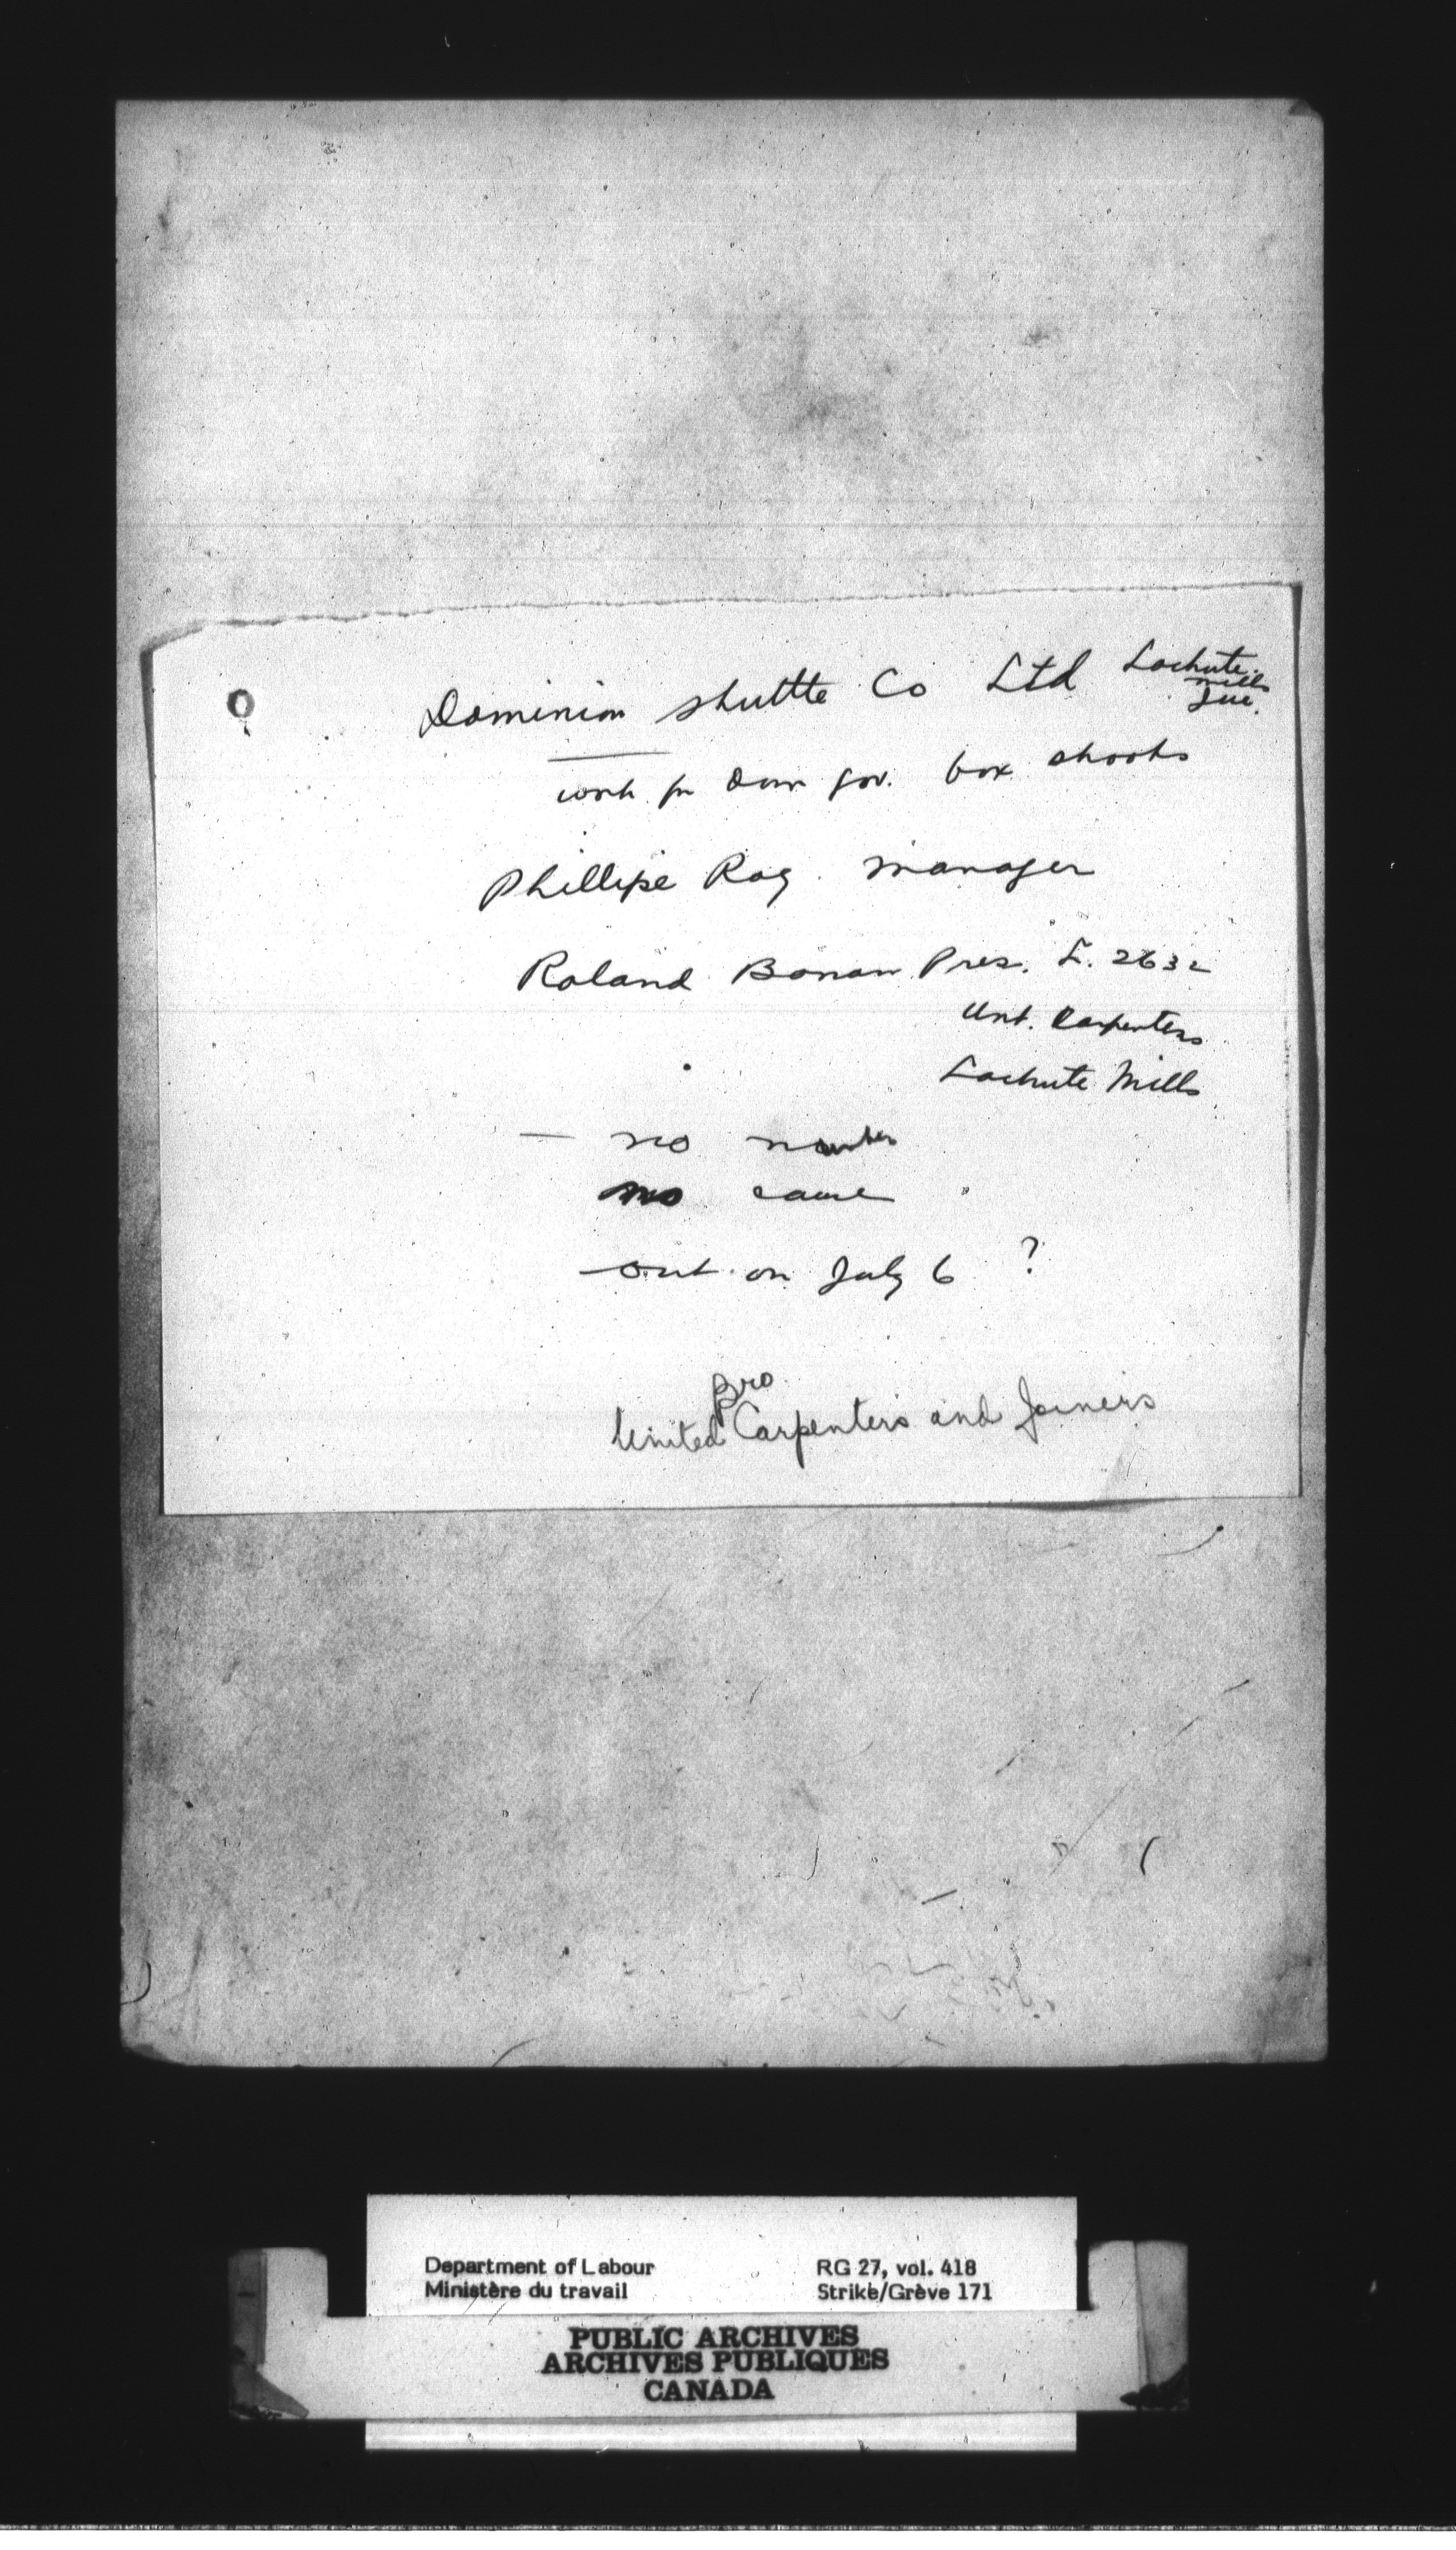 Dominion shuttle Co Ltd Lachute
Mills
Que.
work for Dom gov. box shooks
Phillipe Roy. manager
Roland Pres. L. 2632
Unt. Carpenters
Lachute Mills
— no number
no cause
— out on July 6 ?
Bro
United Carpenters and Joiners
Department of Labour RG 27, vol. 418
Ministère du travail Strike/Grève 171
PUBLIC ARCHIVES
ARCHIVES PUBLIQUES
CANADA